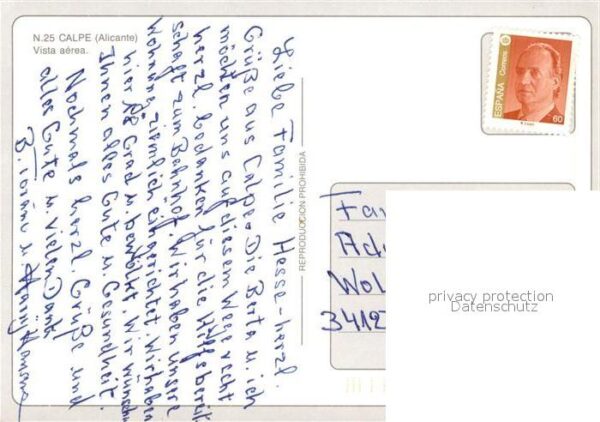 N.25 CALPE (Alicante)
Vista aérea.
Liebe Familie Hesse-herzl.
Grüße aus Calpe. Die Berta u. ich
möchten uns auf diesem Wege recht
herzl. bedanken für die Hilfsbereit
schaft zum Bahnhof. Wir haben unsere
Wohnung ziemlich eingerichtet. Wir haben
hier 18 Grad u. bewölkt. Wir wünschen
Ihnen alles Gute u. Gesundheit.
Nochmals herzl. Grüße und
alles Gute u. vielen Dank
B. u. Harry
REPRODUCCION PROHIBIDA
ESPAÑA
Correos
60
Fam
Ade
Wol
3412
privacy protection
Datenschutz